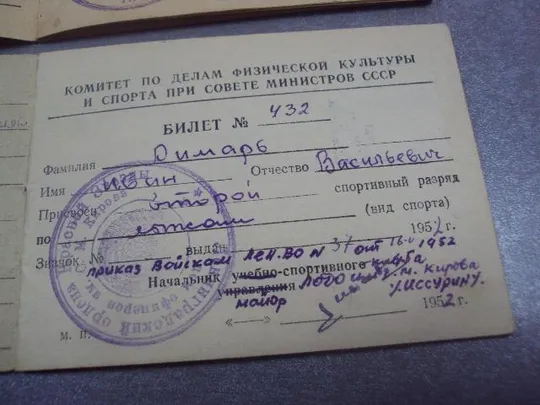 КОМИТЕТ ПО ДЕЛАМ ФИЗИЧЕСКОЙ КУЛЬТУРЫ
И СПОРТА ПРИ СОВЕТЕ МИНИСТРОВ СССР
БИЛЕТ № 432
Фамилия Димарь
Имя Иван Отчество Васильевич
Присвоен второй спортивный разряд
по лыжам (вид спорта)
Значок № выдан 1952 г.
приказ Войскам Лен.ВО № 31 от 1952
Начальник учебно-спортивного клуба
управления ЛОДО им. Кирова
майор /ИССУРИН/.
« » 1952 г.
М. П.
Ленинградский ордена Красной Звезды
офицеров им. С. М. Кирова